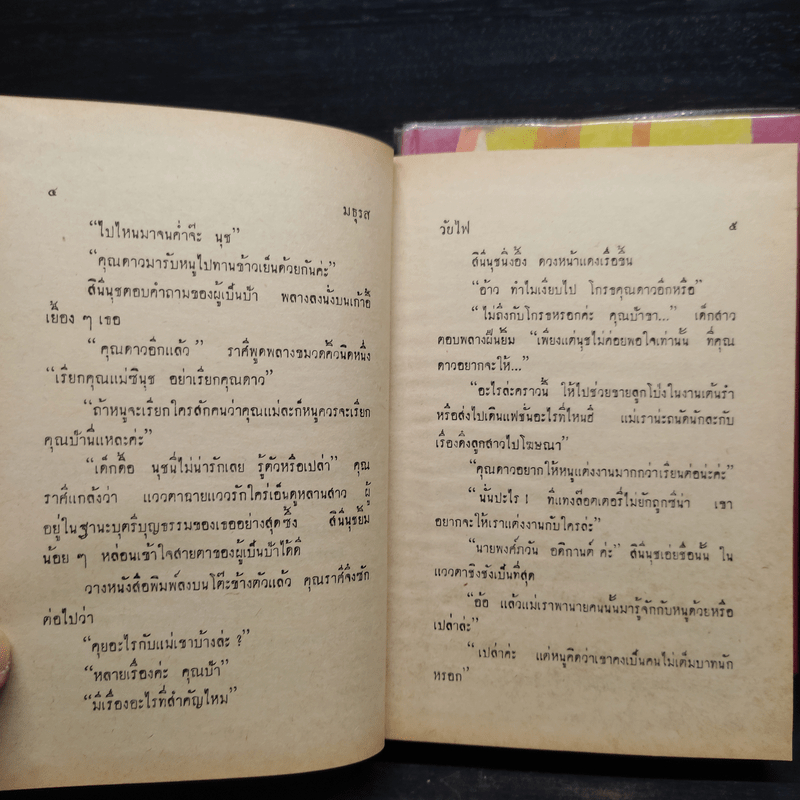 ๔
มธุรส
“ไปไหนมาจนค่ำจ๊ะ นุช”
“คุณดาวมารับหนูไปทานข้าวเย็นด้วยกันค่ะ”
สินีนุชตอบคำถามของผู้เป็นป้า พลางลงนั่งบนเก้าอี้
เยื้อง ๆ เธอ
“คุณดาวอีกแล้ว” ราศีพูดพลางขมวดคิ้วนิดหนึ่ง
“เรียกคุณแม่ซินุช อย่าเรียกคุณดาว”
“ถ้าหนูจะเรียกใครสักคนว่าคุณแม่ละก็หนูควรจะเรียก
คุณป้านี่แหละค่ะ”
“เด็กดื้อ นุชนี่ไม่น่ารักเลย รู้ตัวหรือเปล่า” คุณ
ราศีแกล้งว่า แววตาฉายแววรักใคร่เอ็นดูหลานสาว ผู้
อยู่ในฐานะบุตรีบุญธรรมของเธออย่างสุดซึ้ง สินีนุชยิ้ม
น้อย ๆ หล่อนเข้าใจสายตาของผู้เป็นป้าได้ดี
วางหนังสือพิมพ์ลงบนโต๊ะข้างตัวแล้ว คุณราศีจึงซัก
ต่อไปว่า
“คุยอะไรกับแม่เขาบ้างล่ะ ?”
“หลายเรื่องค่ะ คุณป้า”
“มีเรื่องอะไรที่สำคัญไหม”
วัยไฟ
๕
สินีนุชนิ่งอึ้ง ดวงหน้าแดงเรื่อขึ้น
“อ้าว ทำไมเงียบไป โกรธคุณดาวอีกหรือ”
“ไม่ถึงกับโกรธหรอกค่ะ คุณป้าขา...” เด็กสาว
ตอบพลางฝืนยิ้ม “เพียงแต่นุชไม่ค่อยพอใจเท่านั้น ที่คุณ
ดาวอยากจะให้...”
“อะไรล่ะคราวนี้ ให้ไปช่วยขายลูกโป่งในงานเต้นรำ
หรือส่งไปเดินแฟชั่นอะไรที่ไหนฮึ แม่เราน่ะถนัดนักละกับ
เรื่องดึงลูกสาวไปโฆษณา”
“คุณดาวอยากให้หนูแต่งงานมากกว่าเรียนต่อน่ะค่ะ”
“นั่นปะไร ! ทีแทงล็อตเตอรี่ไม่ยักถูกซีน่า เขา
อยากจะให้เราแต่งงานกับใครล่ะ”
“นายพงศ์ภวัน อติกานต์ ค่ะ” สินีนุชเอ่ยชื่อนั้น ใน
แววตาชิงชังเป็นที่สุด
“อ้อ แล้วแม่เราพานายคนนั้นมารู้จักกับหนูด้วยหรือ
เปล่าล่ะ”
“เปล่าค่ะ แต่หนูคิดว่าเขาคงเป็นคนไม่เต็มบาทนัก
หรอก”